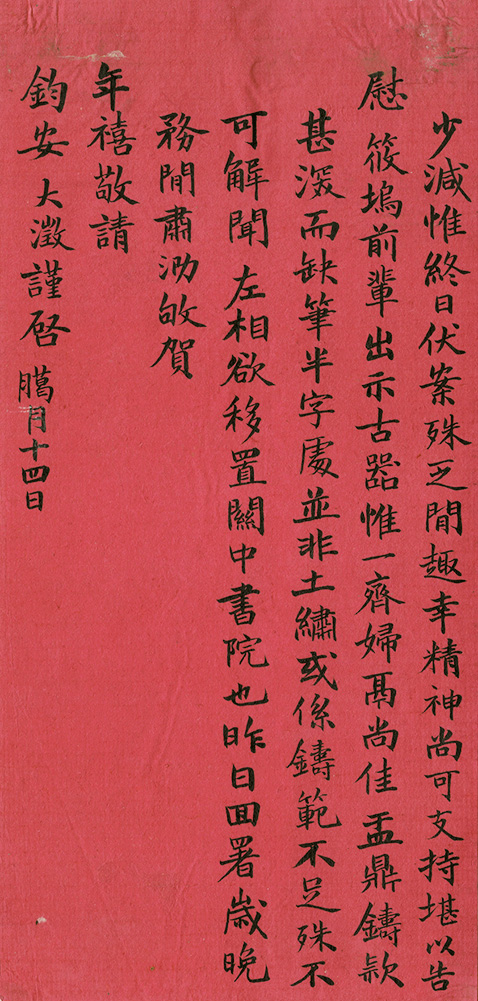 少減惟終日伏案殊乏閒趣幸精神尚可支持堪以告
慰筱塢前輩出示古器惟一齊婦鬲尚佳盂鼎鑄款
甚深而缺筆半字處並非土繡或係鑄範不足殊不
可解聞左相欲移置關中書院也昨日回署歲晚
務閒肅泐敬賀
年禧敬請
鈞安大澂謹啓臈月十四日